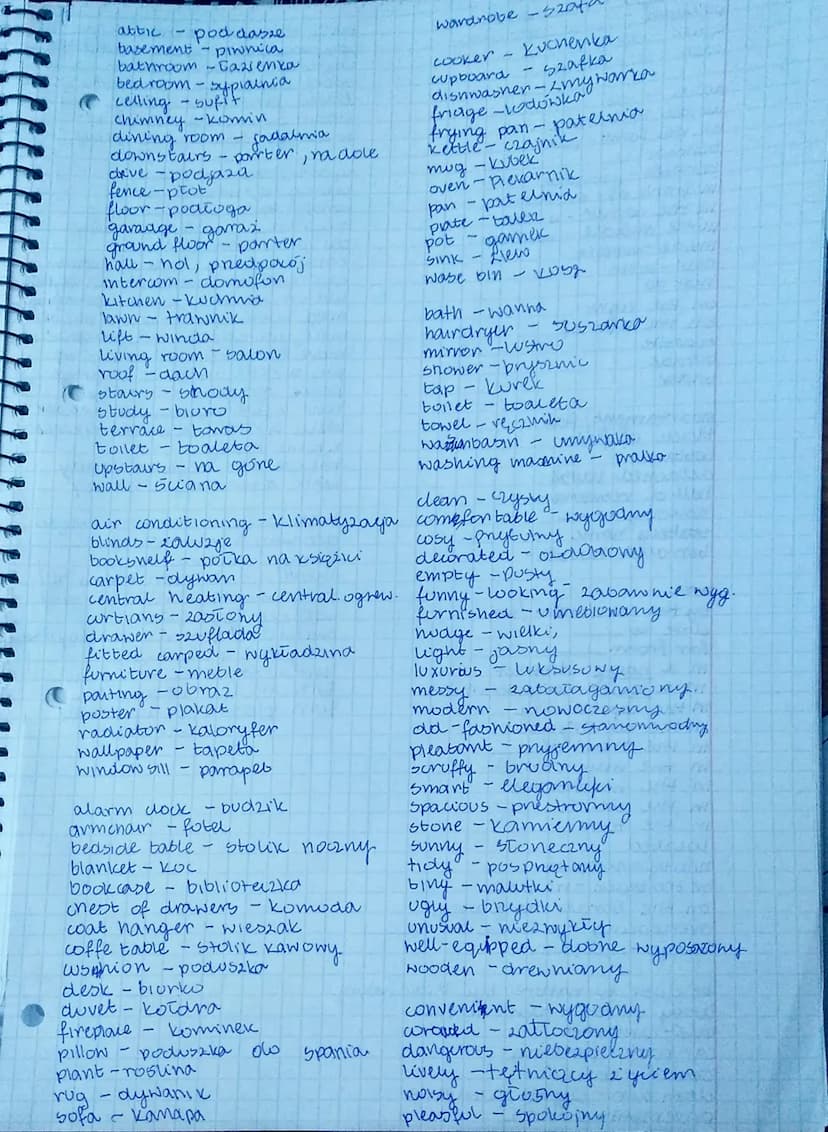 attic - poddasze
basement - piwnica
bathroom - łazienka
bedroom - sypialnia
celling - sufit
chimney - komin
dining room - jadalnia
downstairs - parter, na dole
drive - podjazd
fence - płot
floor - podłoga
garadge - garaż
ground floor - parter
hall - hol, przedpokój
intercom - domofon
kitchen - kuchnia
lawn - trawnik
lift - winda
living room - salon
roof - dach
stairs - schody
study - biuro
terrace - taras
toilet - toaleta
upstairs - na górze
wall - ściana
air conditioning - klimatyzacja
blinds - żaluzje
bookshelf - półka na książki
carpet - dywan
central heating - central. ogrzew.
curtians - zasłony
drawer - szuflada
fitted carped - wykładzina
furniture - meble
paiting - obraz
poster - plakat
radiator - kaloryfer
wallpaper - tapeta
window sill - parapet
alarm clock - budzik
armchair - fotel
bedside table - stolik nocny
blanket - koc
bookcase - biblioteczka
chest of drawers - komoda
coat hanger - wieszak
coffe table - stolik kawowy
cushion - poduszka
desk - biurko
duvet - kołdra
fireplace - kominek
pillow - poduszka do spania
plant - roślina
rug - dywanik
sofa - kanapa
wardrobe - szafa
cooker - kuchenka
cupboard - szafka
dishwasher - zmywarka
fridge - lodówka
frying pan - patelnia
kettle - czajnik
mug - kubek
oven - piekarnik
pan - patelnia
plate - talerz
pot - garnek
sink - zlew
wase bin - kosz
bath - wanna
hairdryer - suszarka
mirror - lustro
shower - prysznic
tap - kurek
toilet - toaleta
towel - ręcznik
washbasin - umywalka
washing machine - pralka
clean - czysty
comefortable - wygodny
cosy - przytulny
decorated - ozdobiony
empty - pusty
funny-looking - zabawnie wyg.
furnished - umeblowany
hudge - wielki,
light - jasny
luxurius - luksusowy
messy - zabałaganiony
modern - nowoczesny
old-fashioned - staromodny
pleatant - przyjemny
scruffy - brudny
smart - elegancki
spacious - przestronny
stone - kamienny
sunny - słoneczny
tidy - posprzątany
tiny - malutki
ugly - brzydki
unusual - niezwykły
well-equipped - dobrze wyposażony
wooden - drewniany
convenient - wygodny
crowded - zatłoczony
dangerous - niebezpieczny
lively - tętniący życiem
noisy - głośny
pleasful - spokojny